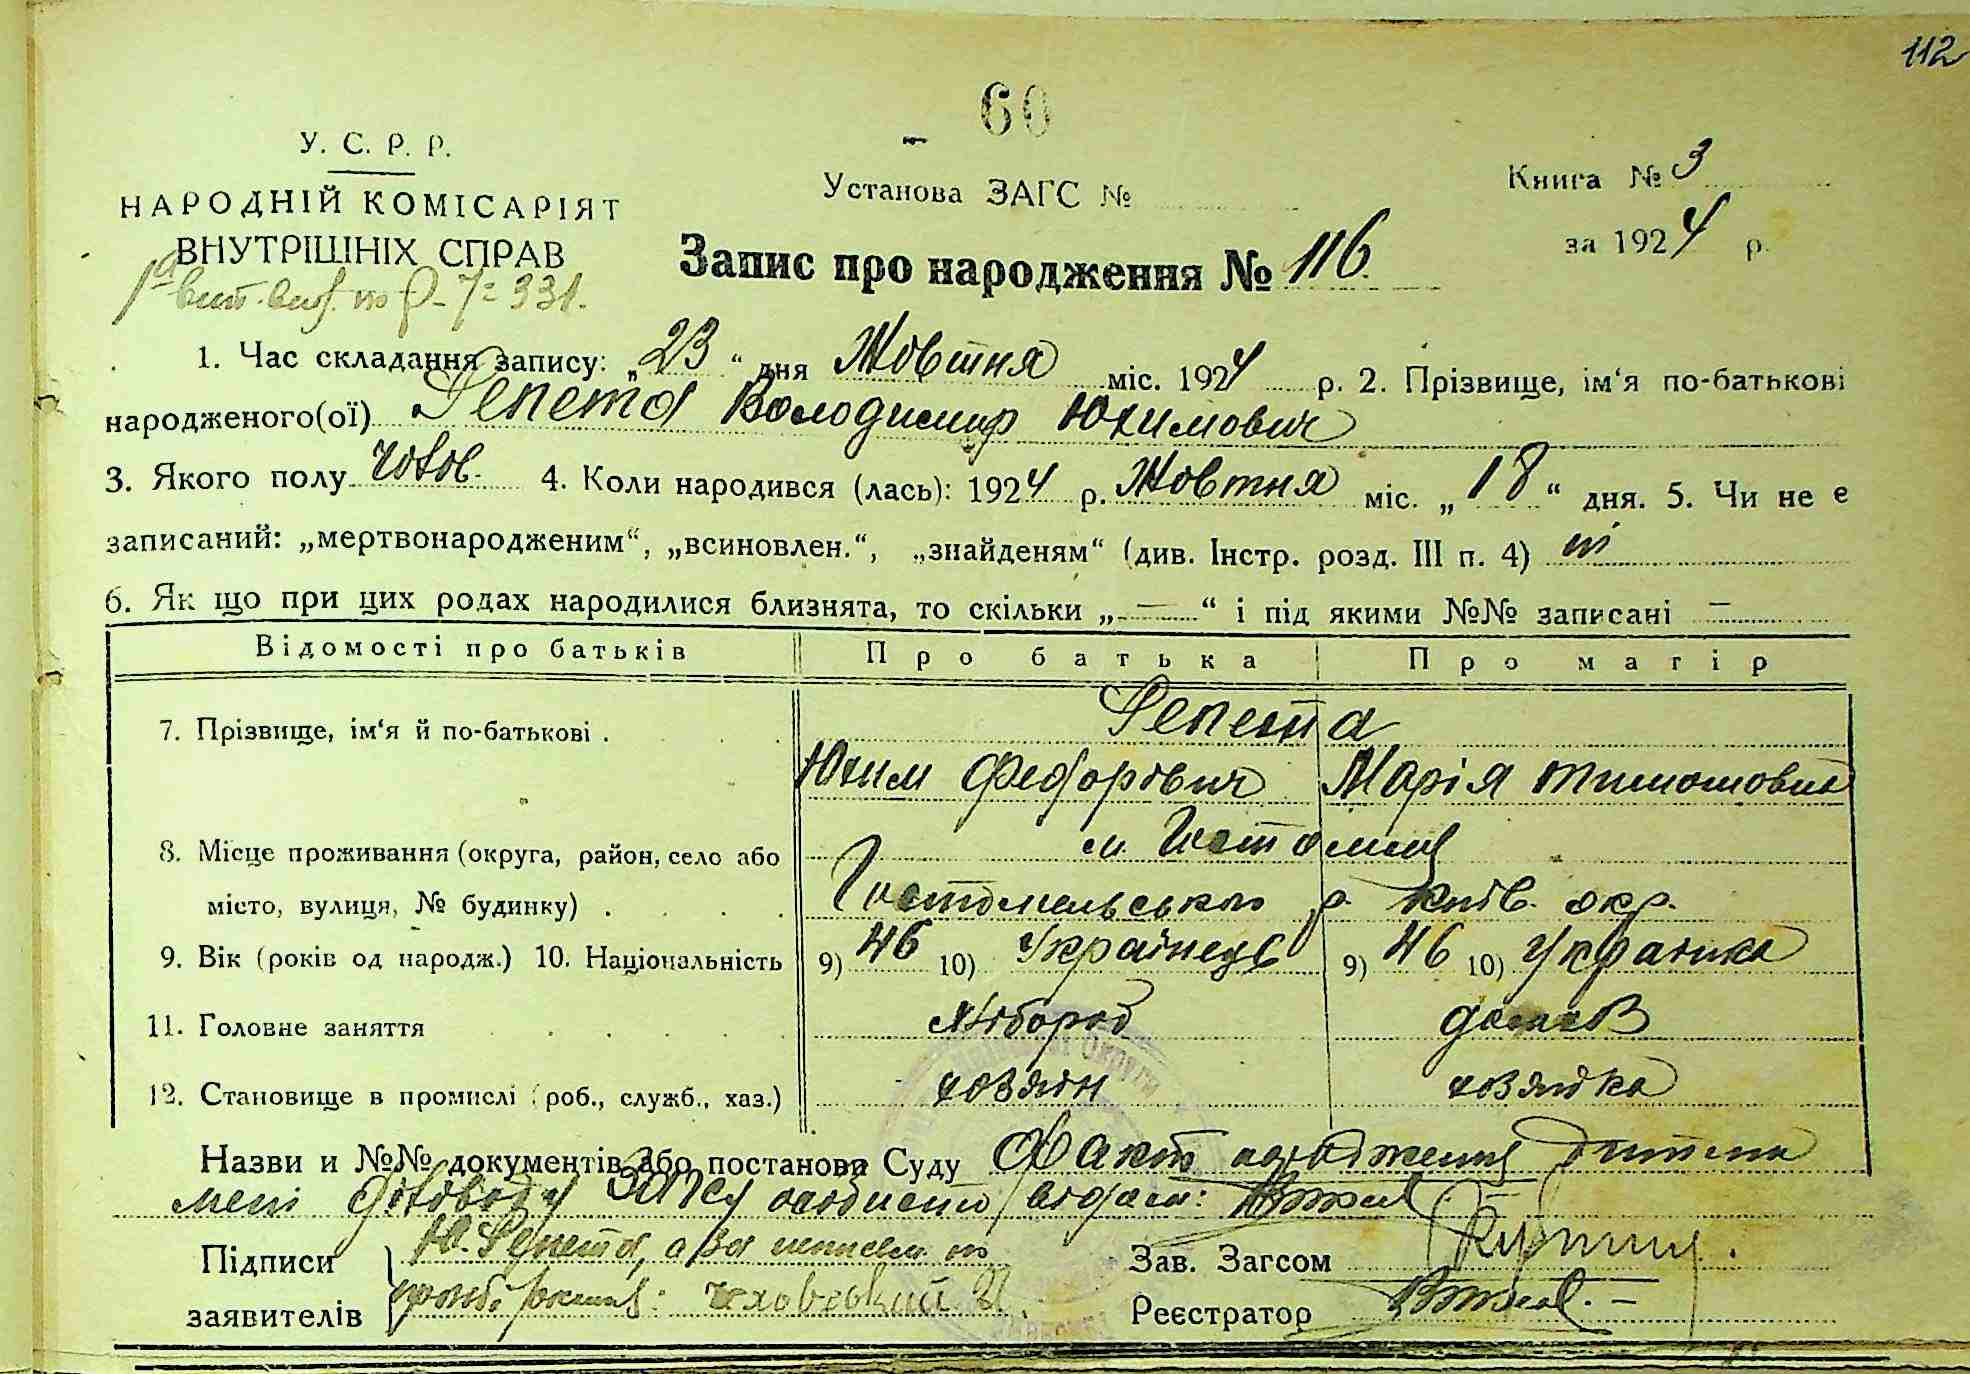 112
60
У. С. Р. Р.
НАРОДНІЙ КОМІСАРІЯТ
ВНУТРІШНІХ СПРАВ
Установа ЗАГС №
Книга № 3
за 1924 р.
Запис про народження № 116.
1. Час складання запису: „23“ дня Жовтня міс. 1924 р. 2. Прізвище, ім‘я по-батькові
народженого(ої) Репета Володимир Юхимович
3. Якого полу чолов. 4. Коли народився (лась): 1924 р. Жовтня міс. „18“ дня. 5. Чи не є
записаний: „мертвонародженим“, „всиновлен.“, „знайденям“ (див. Інстр. розд. III п. 4) ні
6. Як що при цих родах народилися близнята, то скільки „—“ і під якими №№ записані —
Відомості про батьків Про батька Про матір
7. Прізвище, ім‘я й по-батькові . Репета
Юхим Федорович Марія Тимошовна
8. Місце проживання (округа, район, село або м. Гостомель
місто, вулиця, № будинку) . Гостомельського р. Київ. окр.
9. Вік (років од народж.) 10. Національність 9) 46 10) Українець 9) 46 10) Українка
11. Головне заняття хлібороб домаш
12. Становище в промислі (роб., служб., хаз.) хозяін хозяйка
Назви и №№ документів або постанови Суду Факт народження дитини
мені діловоду Загсу особисто відом:
Підписи Ю. Репета, а за
заявителів
Зав. Загсом
Реєстратор